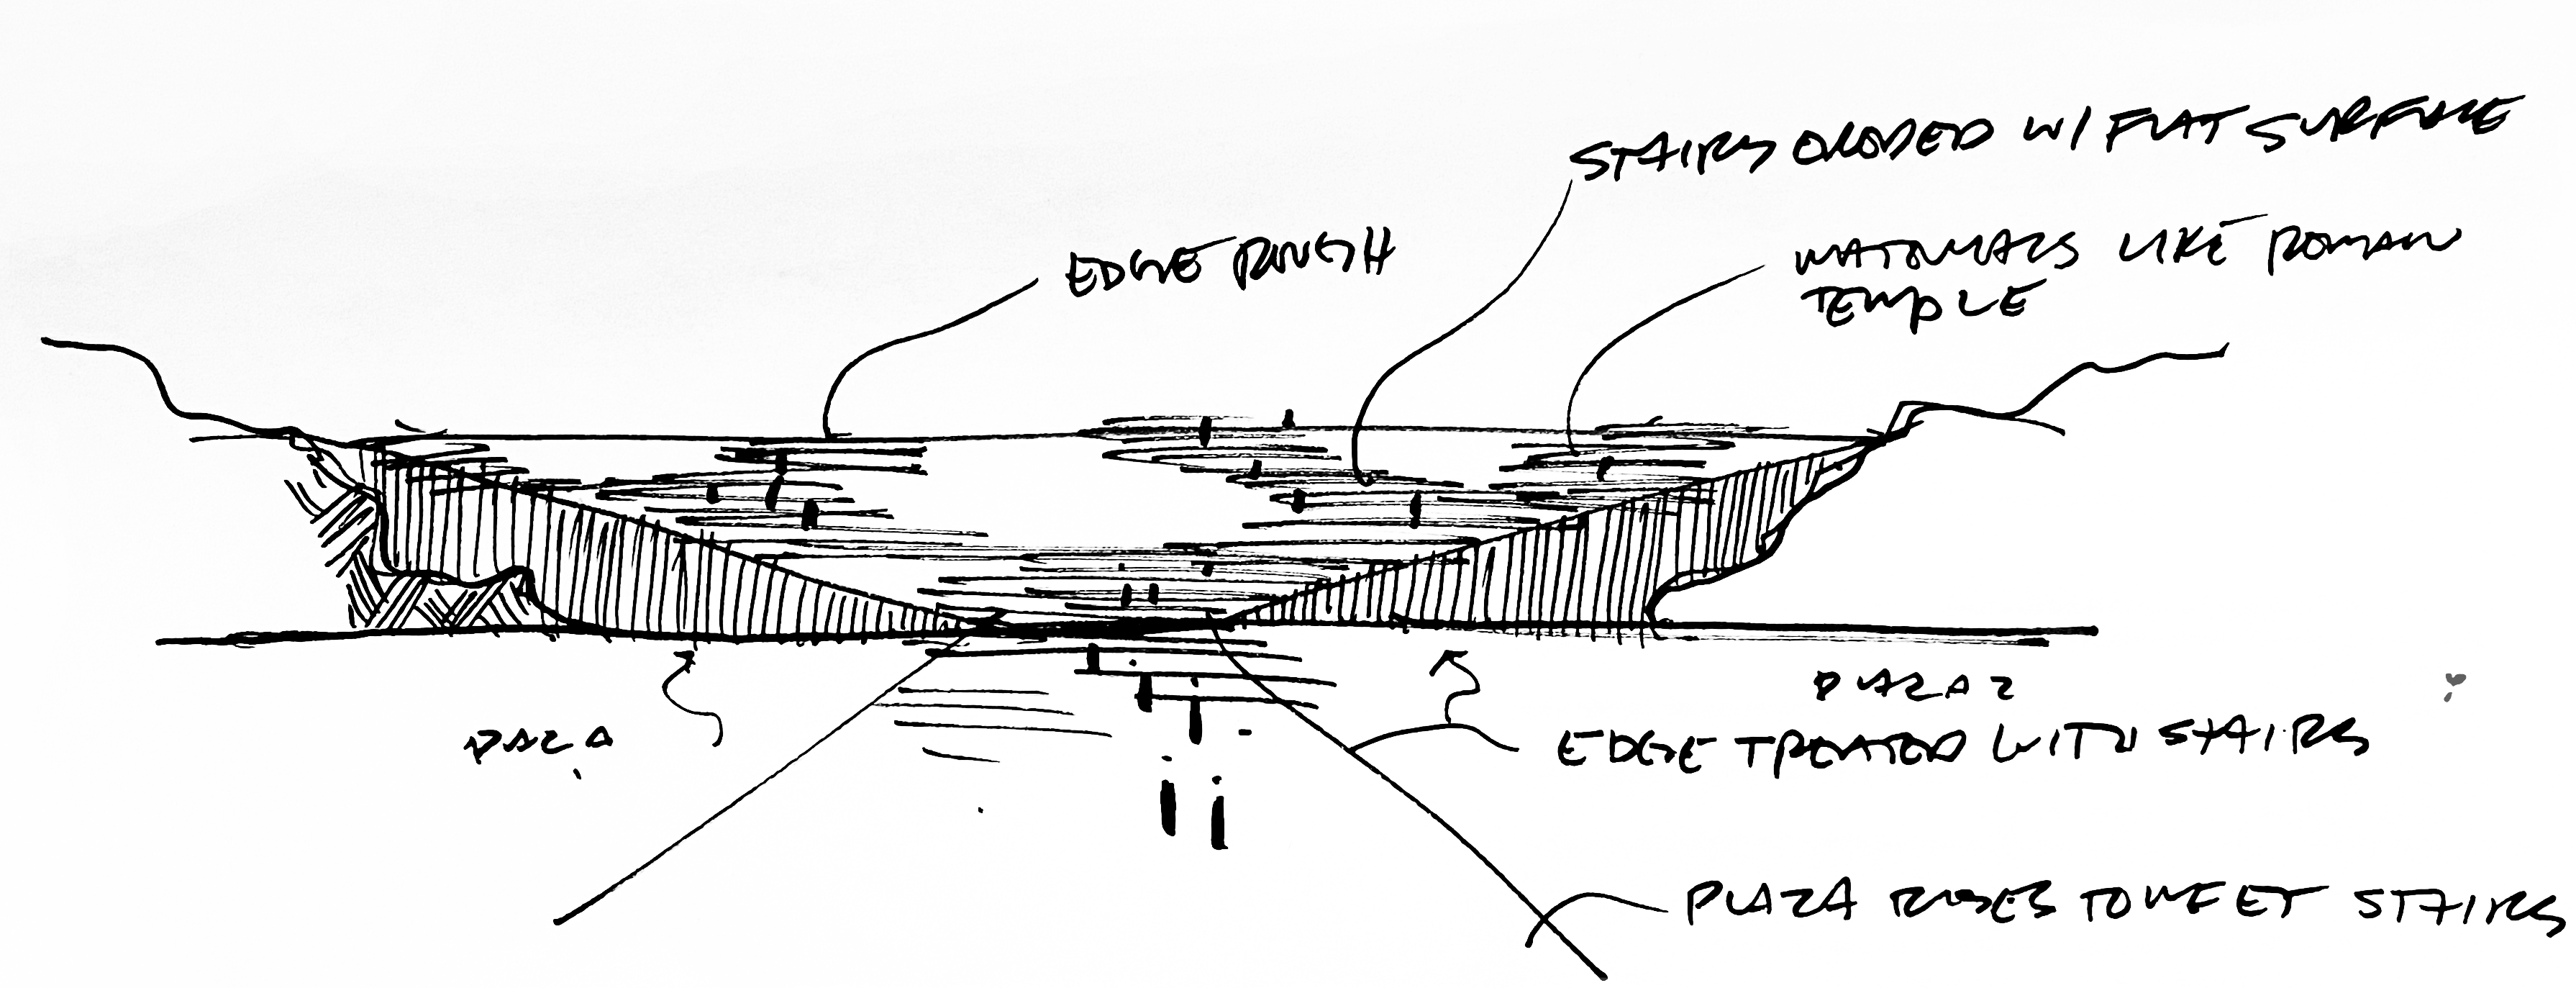 STAIRS ERODED W/ FLAT SURFACE
EDGE ROUGH
MATERIALS LIKE ROMAN
TEMPLE
PLAZA 2
PLAZA
EDGE TREATED WITH STAIRS
PLAZA RISES TO MEET STAIRS